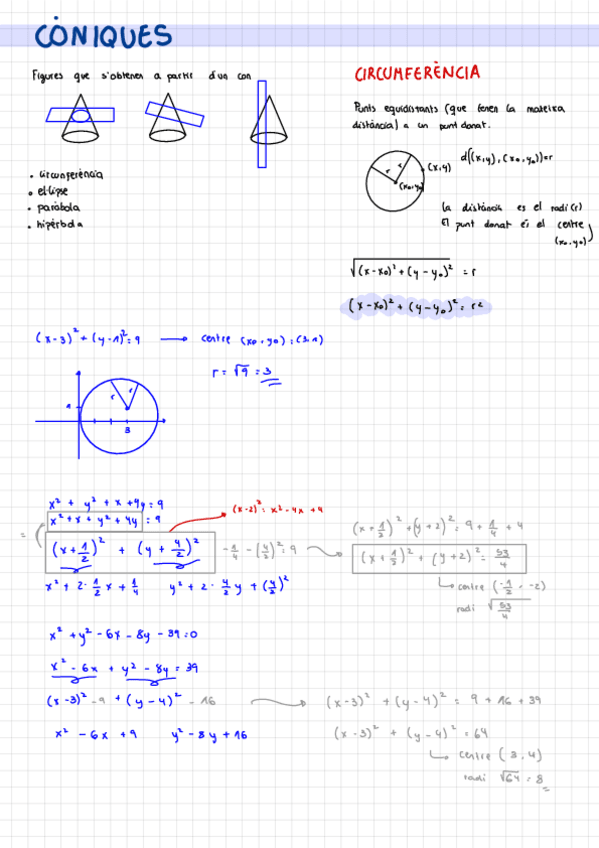 CÒNIQUES
Figures que s'obtenen a partir d'un con
• circumferència
• el·lipse
• paràbola
• hipèrbola
CIRCUMFERÈNCIA
Punts equidistants (que tenen la mateixa
distància) a un punt donat.
r
r
(x,y)
(x₀,y₀)
d((x,y),(x₀,y₀))=r
la distància es el radi (r)
El punt donat és el centre
(x₀,y₀)
√(x-x₀)² + (y-y₀)² = r
(x-x₀)² + (y-y₀)² = r²
(x-3)² + (y-1)² = 9 → centre (x₀,y₀) = (3,1)
r = √9 = 3
r
r
1
3
x² + y² + x + 4y = 9
x² + x + y² + 4y = 9
(x-2)² = x² - 4x + 4
=
(x + 1/2)² + (y + 4/2)² - 1/4 - (4/2)² = 9
x² + 2 · 1/2 x + 1/4 y² + 2 · 4/2 y + (4/2)²
(x + 1/2)² + (y + 2)² = 9 + 1/4 + 4
(x + 1/2)² + (y + 2)² = 53/4
centre (-1/2, -2)
radi √53/4
x² + y² - 6x - 8y - 39 = 0
x² - 6x + y² - 8y = 39
(x-3)² - 9 + (y-4)² - 16
x² - 6x + 9 y² - 8y + 16
(x-3)² + (y-4)² = 9 + 16 + 39
(x-3)² + (y-4)² = 64
centre (3,4)
radi √64 = 8